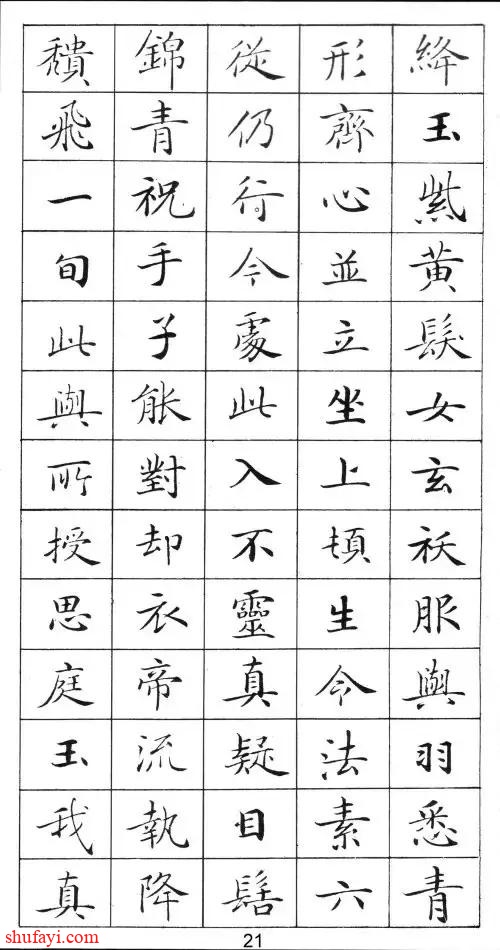 絳玉紫黄髮女玄袄服與羽悉青
形齊心並立坐上頓生今法素六
從仍行今處此入不靈真疑目髻
錦青祝手子能對却衣帝流執降
穨飛一旬此與所授思庭玉我真
shufayi.com
21